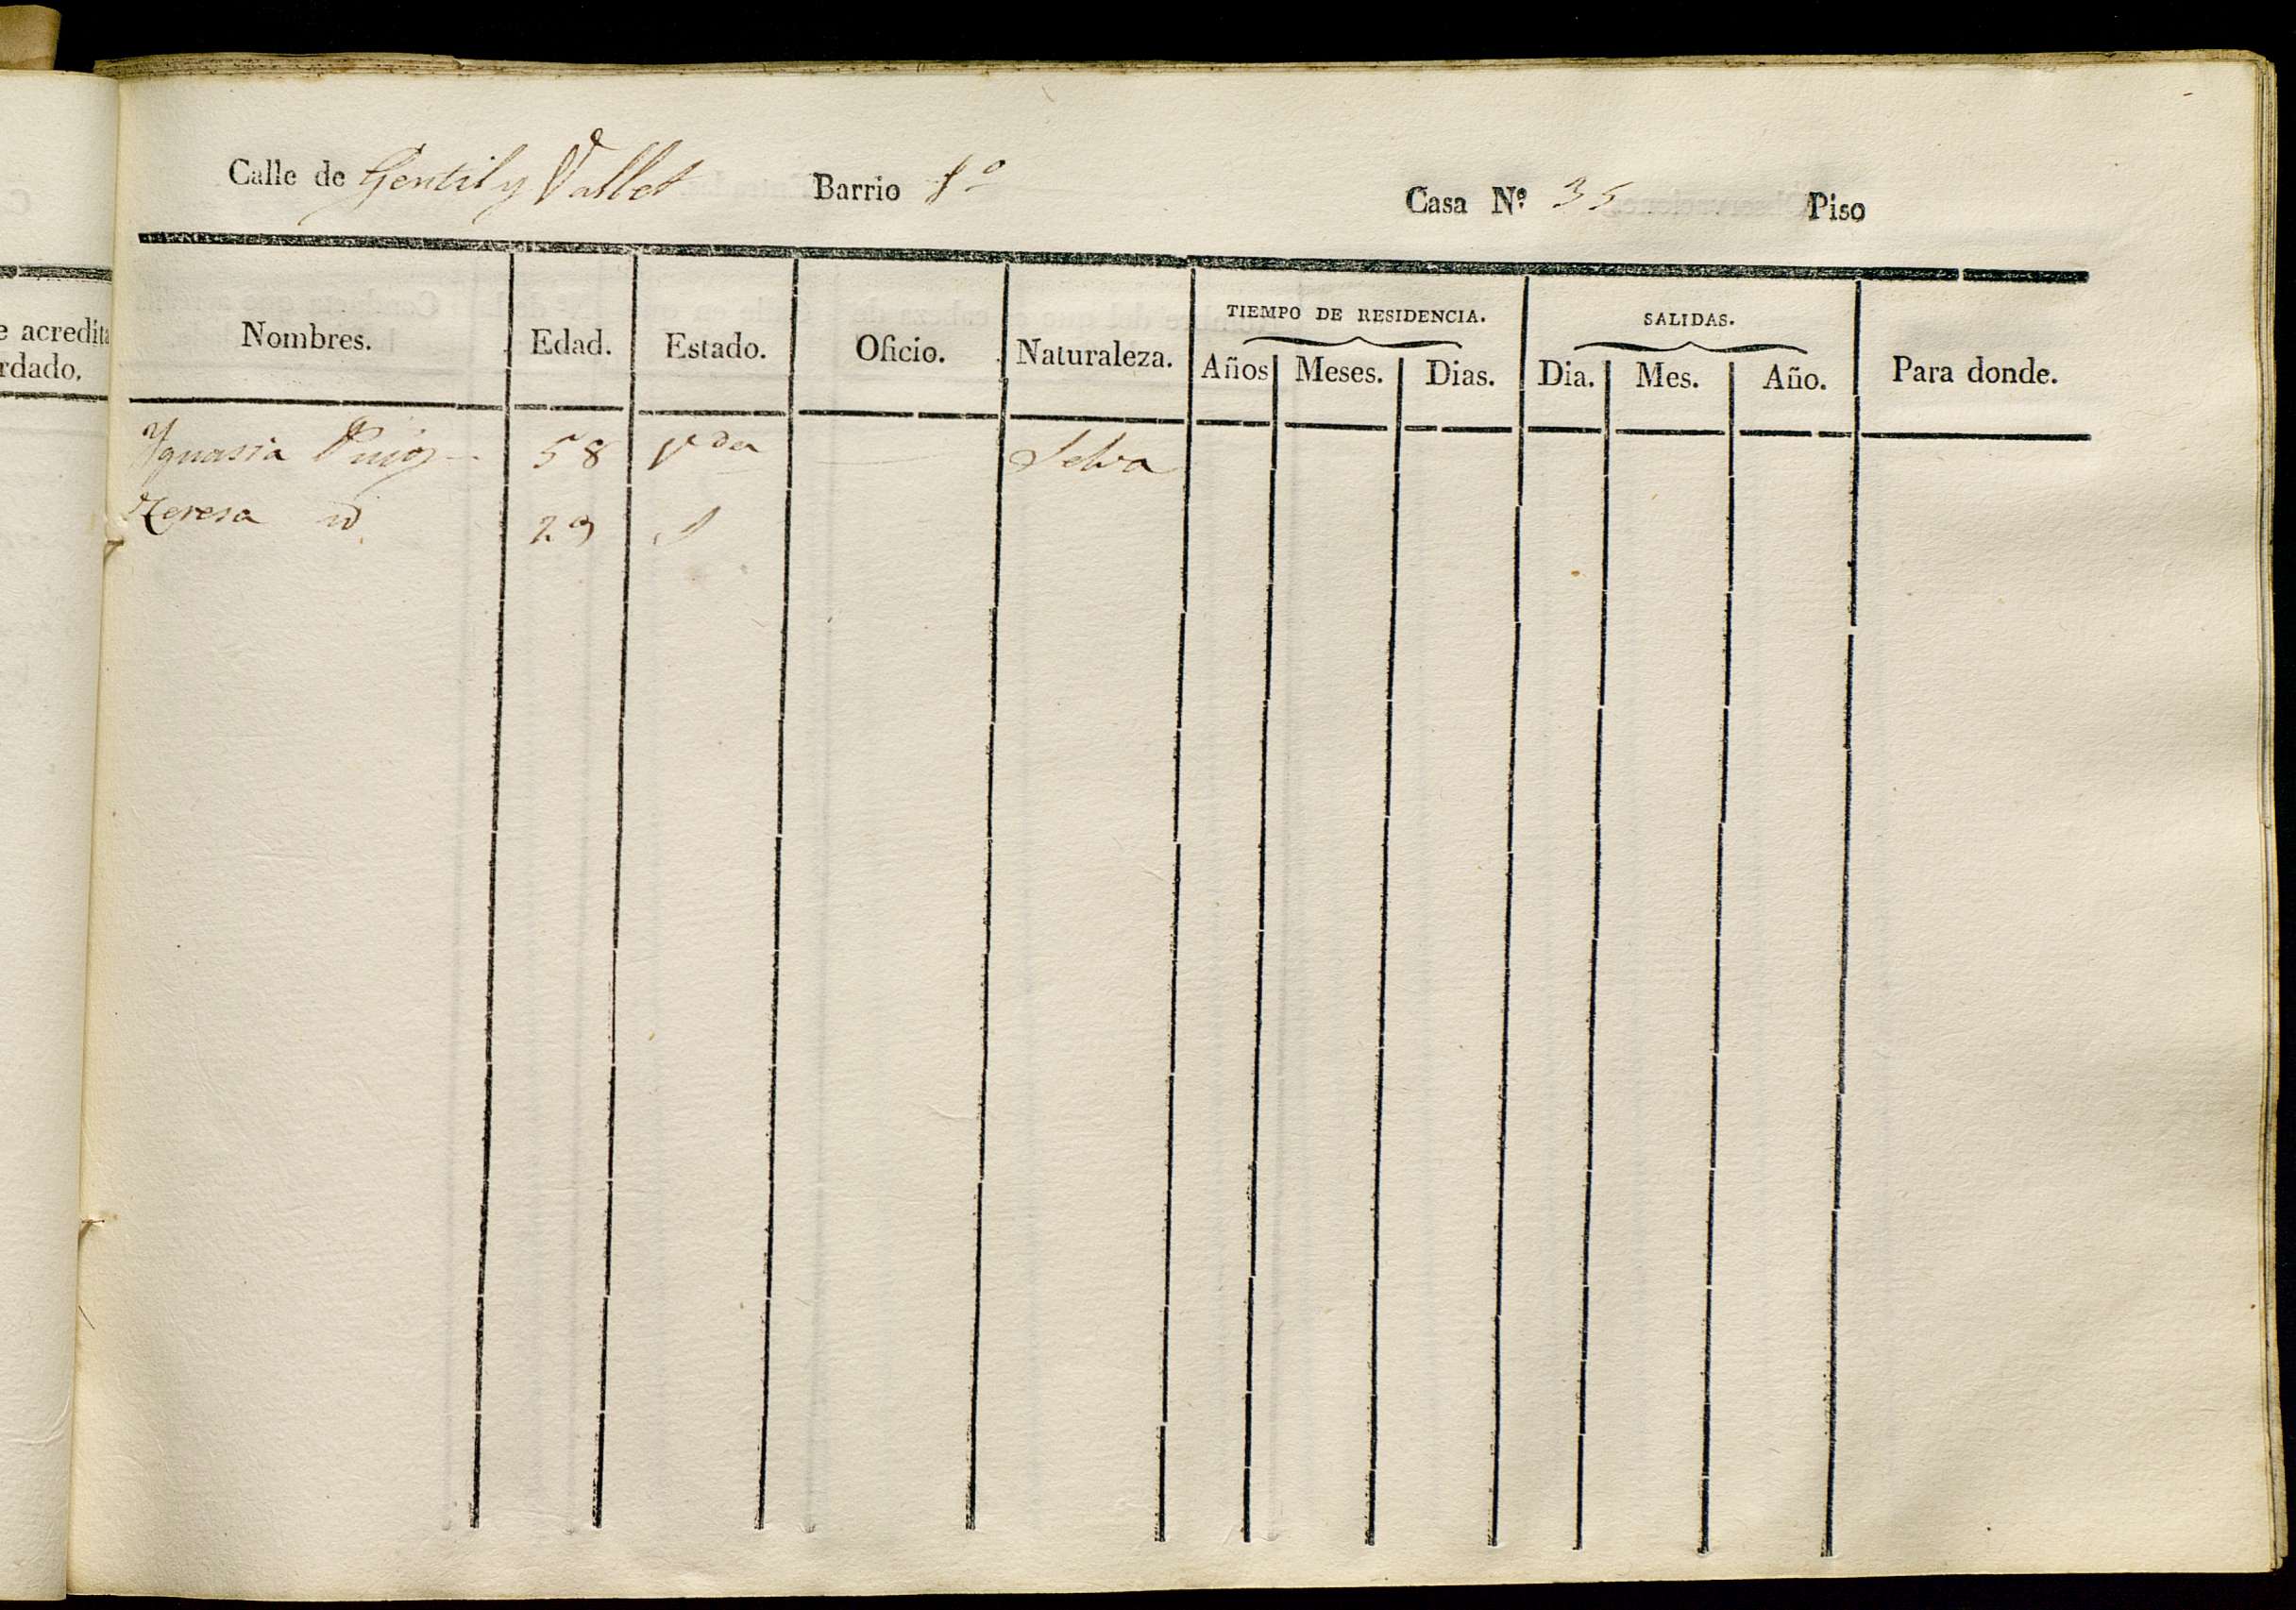 Calle de Gentil y Vallet Barrio 1º Casa Nº 35 Piso
e acredita
rdado.
Nombres. Edad. Estado. Oficio. Naturaleza. TIEMPO DE RESIDENCIA. SALIDAS. Para donde.
Años Meses. Dias. Dia. Mes. Año.
Ygnasia Puig 58 Vda Selva
Teresa id 29 S